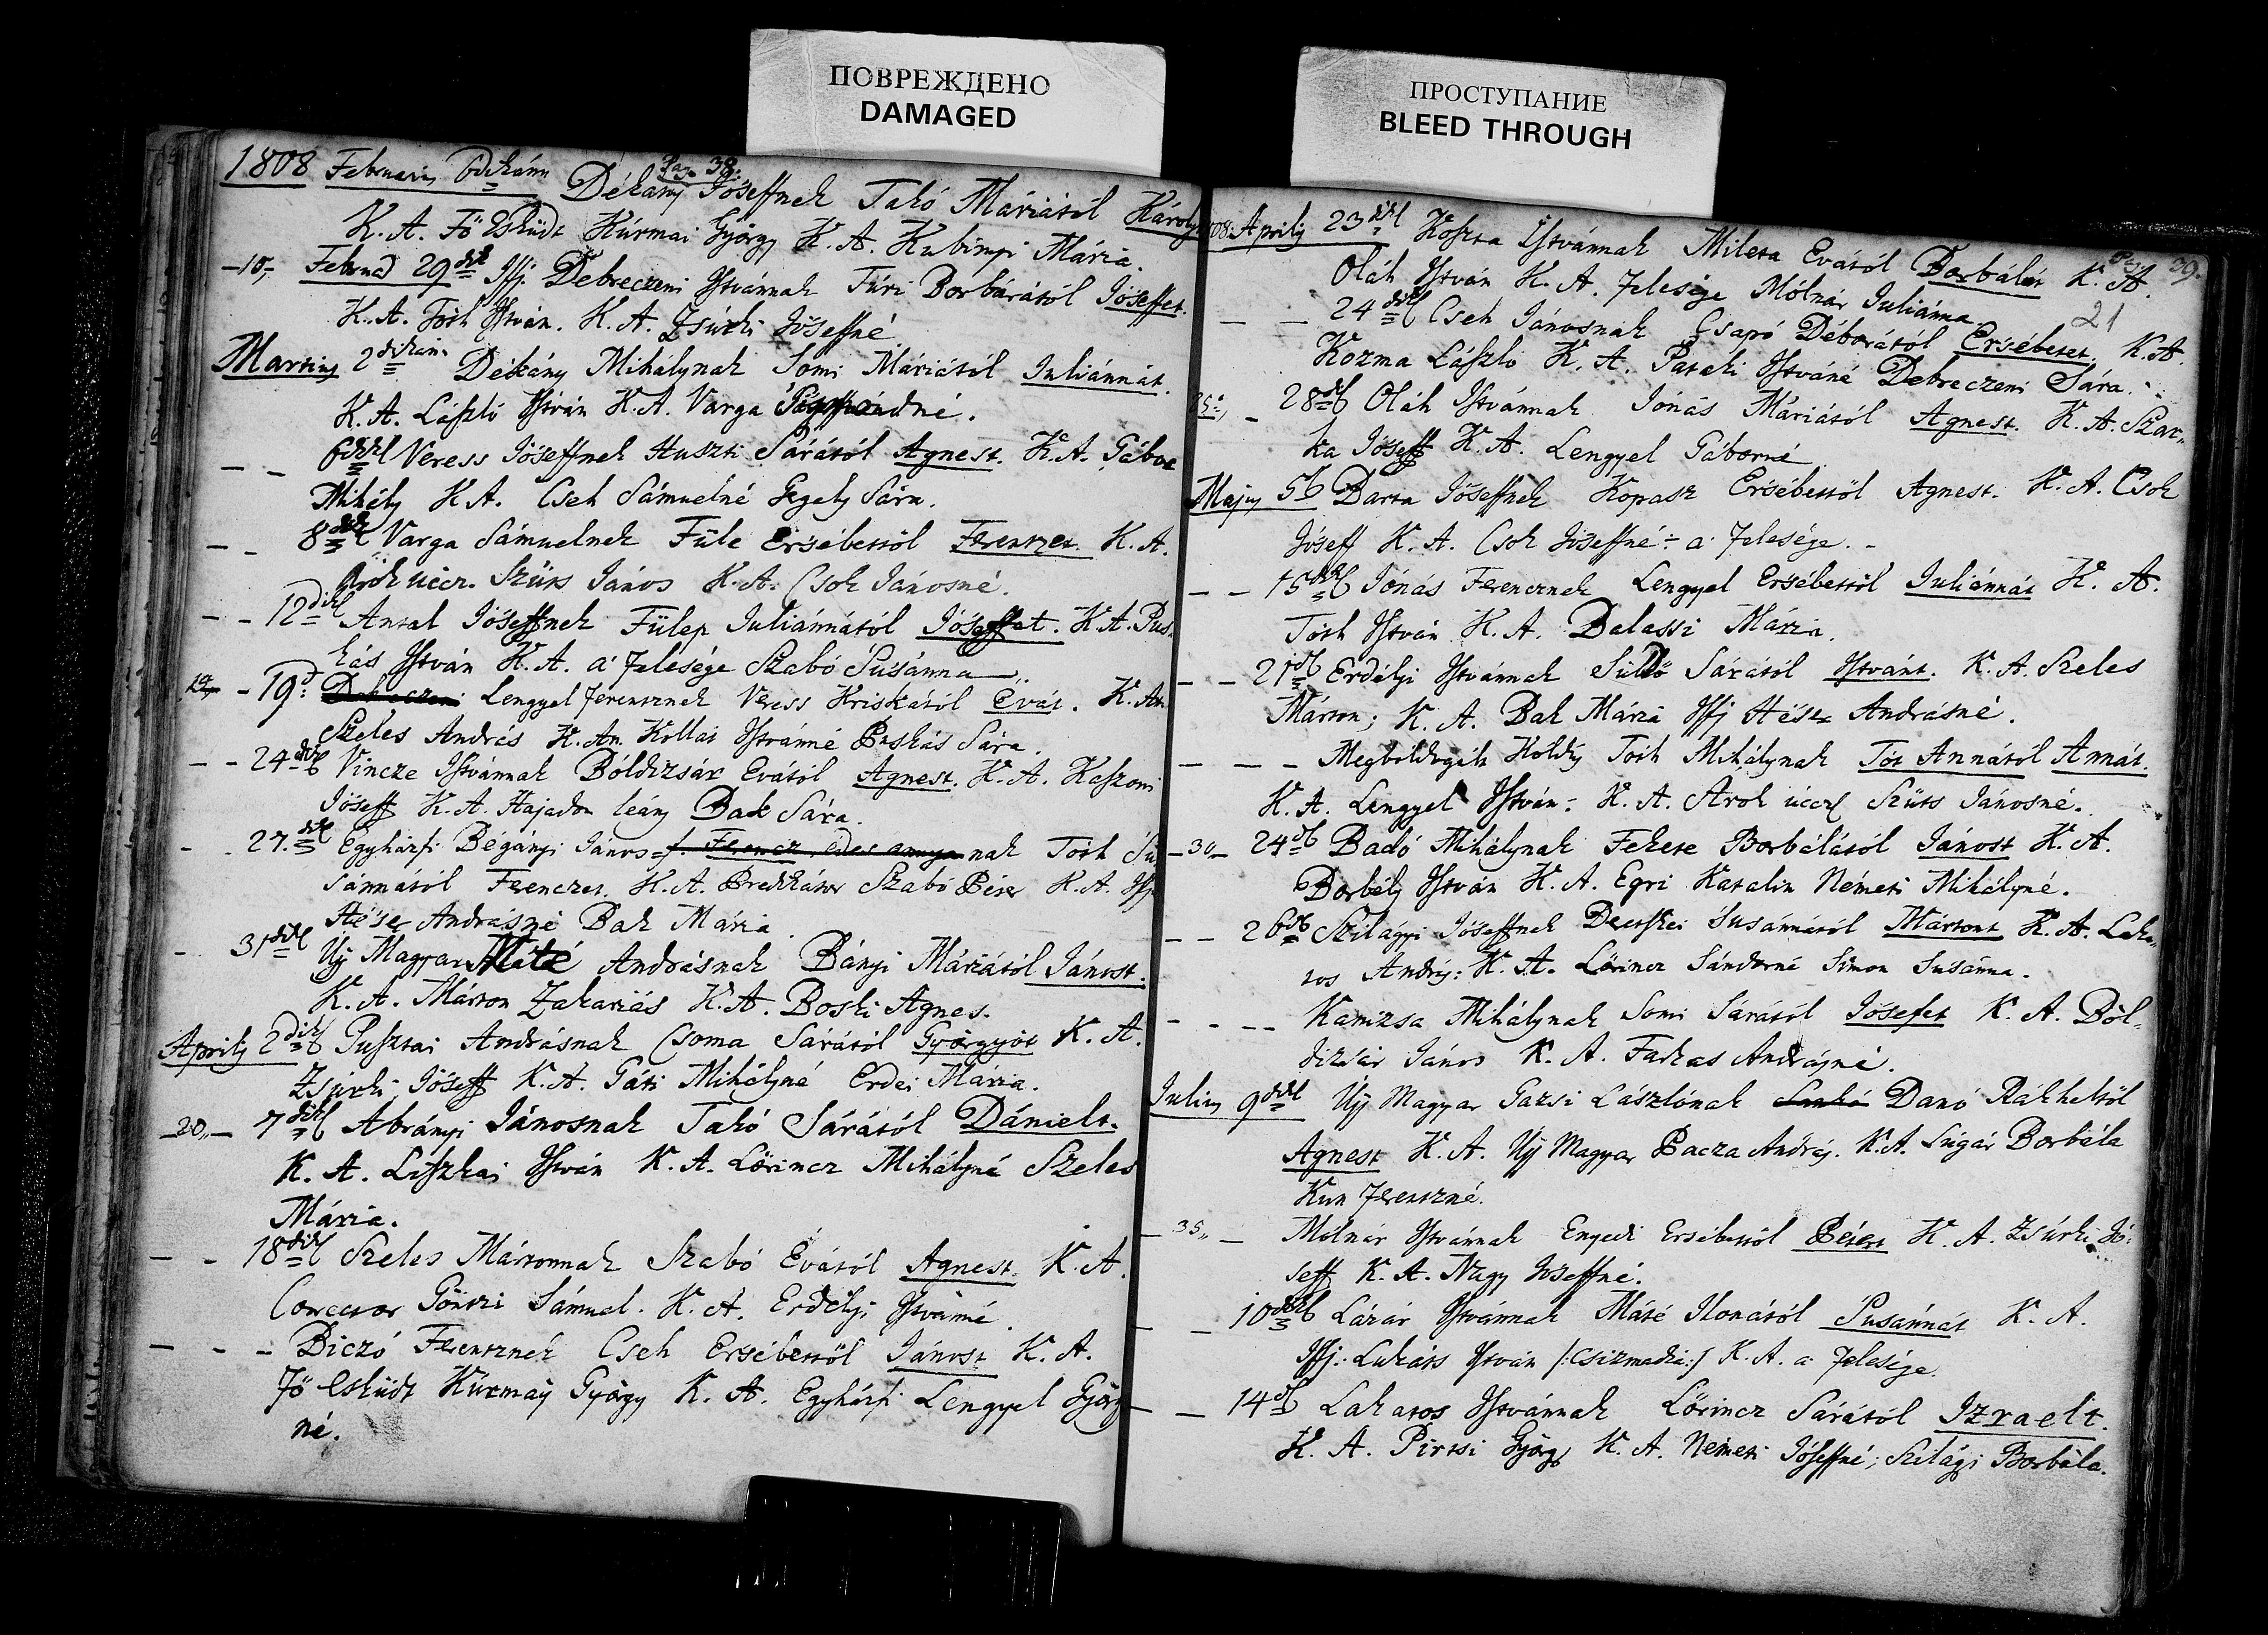 ПОВРЕЖДЕНО
DAMAGED
ПРОСТУПАНИЕ
BLEED THROUGH
Pag. 38.
1808 Februarius 6dikánn Dékány Jóseffnek Takó Máriától Károlyt
K. A. Fő Esküdt Kúrmai György K. A. Kubinyi Mária.
-10,- Februar 29dik Ifj. Debreczeni Istvánnak Túri Borbárától Jóseffet.
K. A. Tóth István. K. A. Zsúrki Jóseffné
Martius 2dikán Dékány Mihálynak Somi Máriától Juliánnát.
K. A. László István K. A. Varga
- - 6dik Veress Jóseffnek Huszti Sárától Agnest. K. A. Gábor
Mihály K. A. Cseh Sámuelné Gegely Sára.
- - 8dik Varga Sámuelnek Füle Ersébettől Ferentzet. K. A.
Szüts János K. A. Csok Jánosné.
- - 12dik Antal Jóseffnek Fülep Juliánnától Jósaffat. K. A. Pus-
kás István K. A. a' felesége Szabó Susánna
- 19d Debreczeni Lengyel Ferentznek Veress Kriskától Evát. K. A.
Szeles András K. An. Kollai Istvánné Puskás Sára.
- - 24dik Vincze Istvánnak Bóldizsár Evától Agnest. K. A. Kaszoni
Jóseff K. A. Hajadon leány Bak Sára.
- - 27.dik Egyházfi Bégányi János f. Ferencz édes annya nak Tóth Su
sánnától Ferenczet. K. A. Predikátor Szabó Péter K. A. Ifj
Hése Andrásné Bak Mária.
- 31dik Uj Magyar Máté Andrásnak Bányi Máriától Jánost.
K. A. Márton Zakariás K. A. Boski Agnes.
Aprilis 2dik Pusztai Andrásnak Csoma Sárától Györgyöt K. A.
Zsúrki Jóseff K. A. Gáti Mihályné Erdei Mária.
-20,,- 7dik Abrányi Jánosnak Takó Sárától Dánielt.
K. A. Liszkai István K. A. Lőrincz Mihályné Szeles
Mária.
- - 18dik Szeles Mártonnak Szabó Evától Agnest. K. A.
Corrector Gönczi Sámuel. K. A. Erdélyi Istvánné.
- - - Biczó Ferentznek Cseh Ersébettől Jánost K. A.
Fő Esküdt Kúrmaÿ György K. A. Egyházfi Lengyel György
né.
Pag. 39.
21
808. Aprilis 23dik Koszta Istvánnak Mileta Evától Borbálát K. A.
Oláh István K. A. felesége Mólnár Juliánna.
- - 24dik Cseh Jánosnak Csapó Déborától Ersébetet. K. A.
Kozma László K. A. Pataki Istváné Debreczeni Sára.
25,, - 28dik Oláh Istvánnak Jónás Máriától Agnest. K. A. Szar-
ka Jóseff K. A. Lengyel Gáborné
Majus 5d Darta Jóseffnek Kopasz Ersébettől Agnest. K. A. Csok
Jóseff K. A. Csok Jóseffné a' felesége.
- - 15dik Jónás Ferencznek Lengyel Ersébettől Juliánnát K. A.
Tóth István K. A. Balassi Mária.
- - 21dik Erdélyi Istvánnak Süllő Sárától Istvánt. K. A. Szeles
Márton; K. A. Bak Mária Ifj Hése Andrásné.
- - - Megboldogúlt Koldúş Tóth Mihálynak Tót Annától Annát.
K. A. Lengyel István. K. A. Szüts Jánosné.
-30- 24d Badó Mihálynak Fekete Borbálától Jánost K. A.
Borbély István K. A. Egri Katalin Németi Mihályné.
- - 26d Szilágyi Jóseffnek Susánnától Mártont K. A. Laka-
tos András: K. A. Lőrincz Sándorné Simon Susánna.
- - - - Kanizsa Mihálynak Somi Sárától Jósefet K. A. Ból-
dizsár János K. A. Farkas Andrásné.
Julius 9dik Uj Magyar Gazsi Lászlónak Danó Rákheltől
Agnest K. A. Uj Magyar Pacza András. K. A. Sugár Borbála
Kun Ferentzné.
- 35,, - Mólnár Istvánnak Enyedi Ersébettől Pétert K. A. Zsúrki Jó-
seff K. A. Nagy Jóseffné.
- - 10dik Lázár Istvánnak Máté Ilonától Susánnát K. A.
Ifj: Lukáts István /: Csizmadia :/ K. A. a felesége.
- - 14d Lakatos Istvánnak Lőrincz Sárától Izraelt.
K. A. Pirtsi György K. A. Németi Jóseffné; Szilági Borbála.